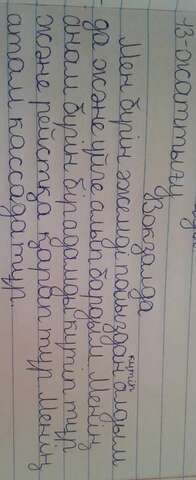 13-жаттығу
вокзалда
Мен бүгін әжемді пойыздан күтіп алдым
да және үйге алып бардым. Менің
анам бүгін бір адамды күтіп тұр
және рейстқа қарап тұр. Менің
атам кассада тұр.